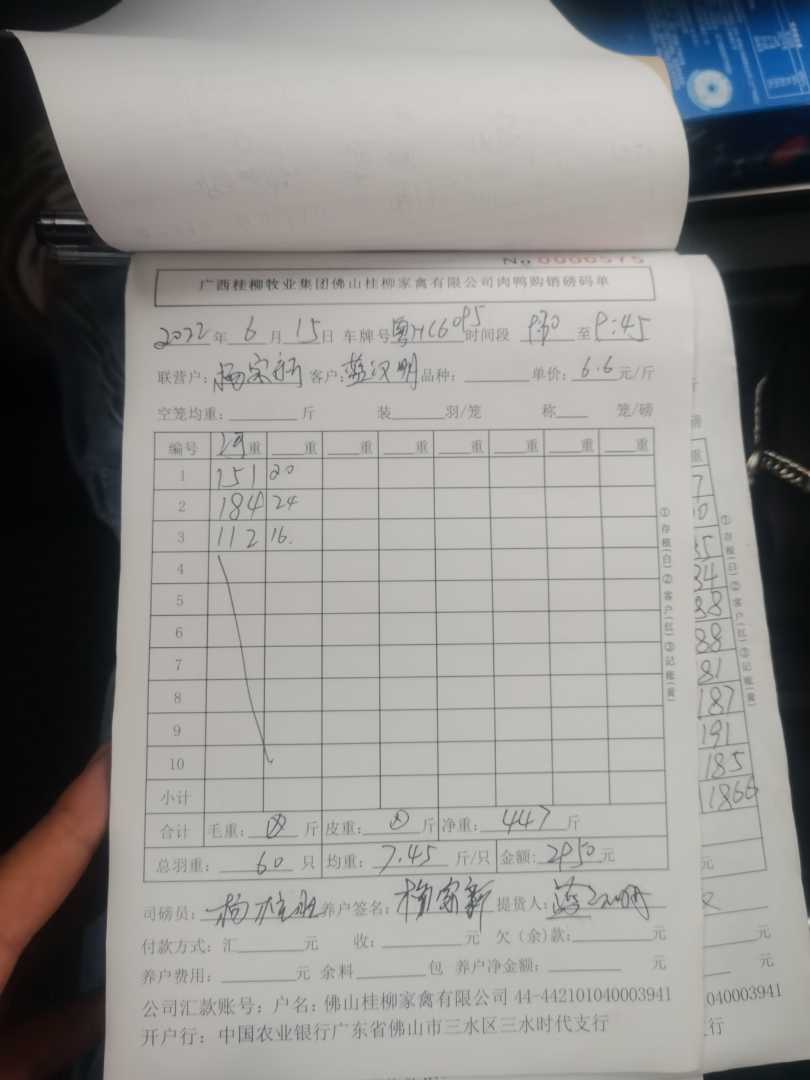 No 0000575
广西桂柳牧业集团佛山桂柳家禽有限公司肉鸭购销磅码单
2022年 6月 15日 车牌号 粤HC6095 时间段 9:30 至 9:45
联营户: 杨宗新 客户: 蓝汉明 品种: 单价: 6.6 元/斤
空笼均重: 斤 装 羽/笼 称 笼/磅
编号 净重 重 重 重 重 重 重 重
1 151 20
2 184 24
3 112 16.
4
5
6
7
8
9
10
小计
合计 毛重: 斤 皮重: 斤 净重: 447 斤
总羽重: 60 只 均重: 7.45 斤/只 金额: 2950 元
司磅员: 养户签名: 杨宗新 提货人: 蓝汉明
付款方式: 汇 元 收: 元 欠(余)款: 元
养户费用: 元 余料 包 养户净金额: 元
公司汇款账号: 户名: 佛山桂柳家禽有限公司 44-442101040003941
开户行: 中国农业银行广东省佛山市三水区三水时代支行
①存根(白)②客户(红)③记账(黄)
斤
磅
重
34
88
88
81
187
191
185
1866
元
①存根(白)②客户(红)③记账(黄)
元
元
040003941
行